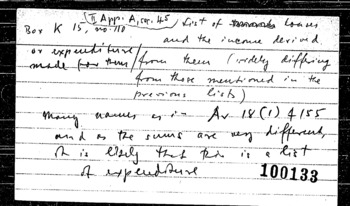 (II App. A, cap. 45)
Box K 15, no. 110 List of loans
and the income derived
or expenditure
made for them / from them (widely differing
from those mentioned in the
previous lists)
Many names as in Av. 18 (1) f 155
and as the sums are very different,
it is likely that this is a list
of expenditure
100133